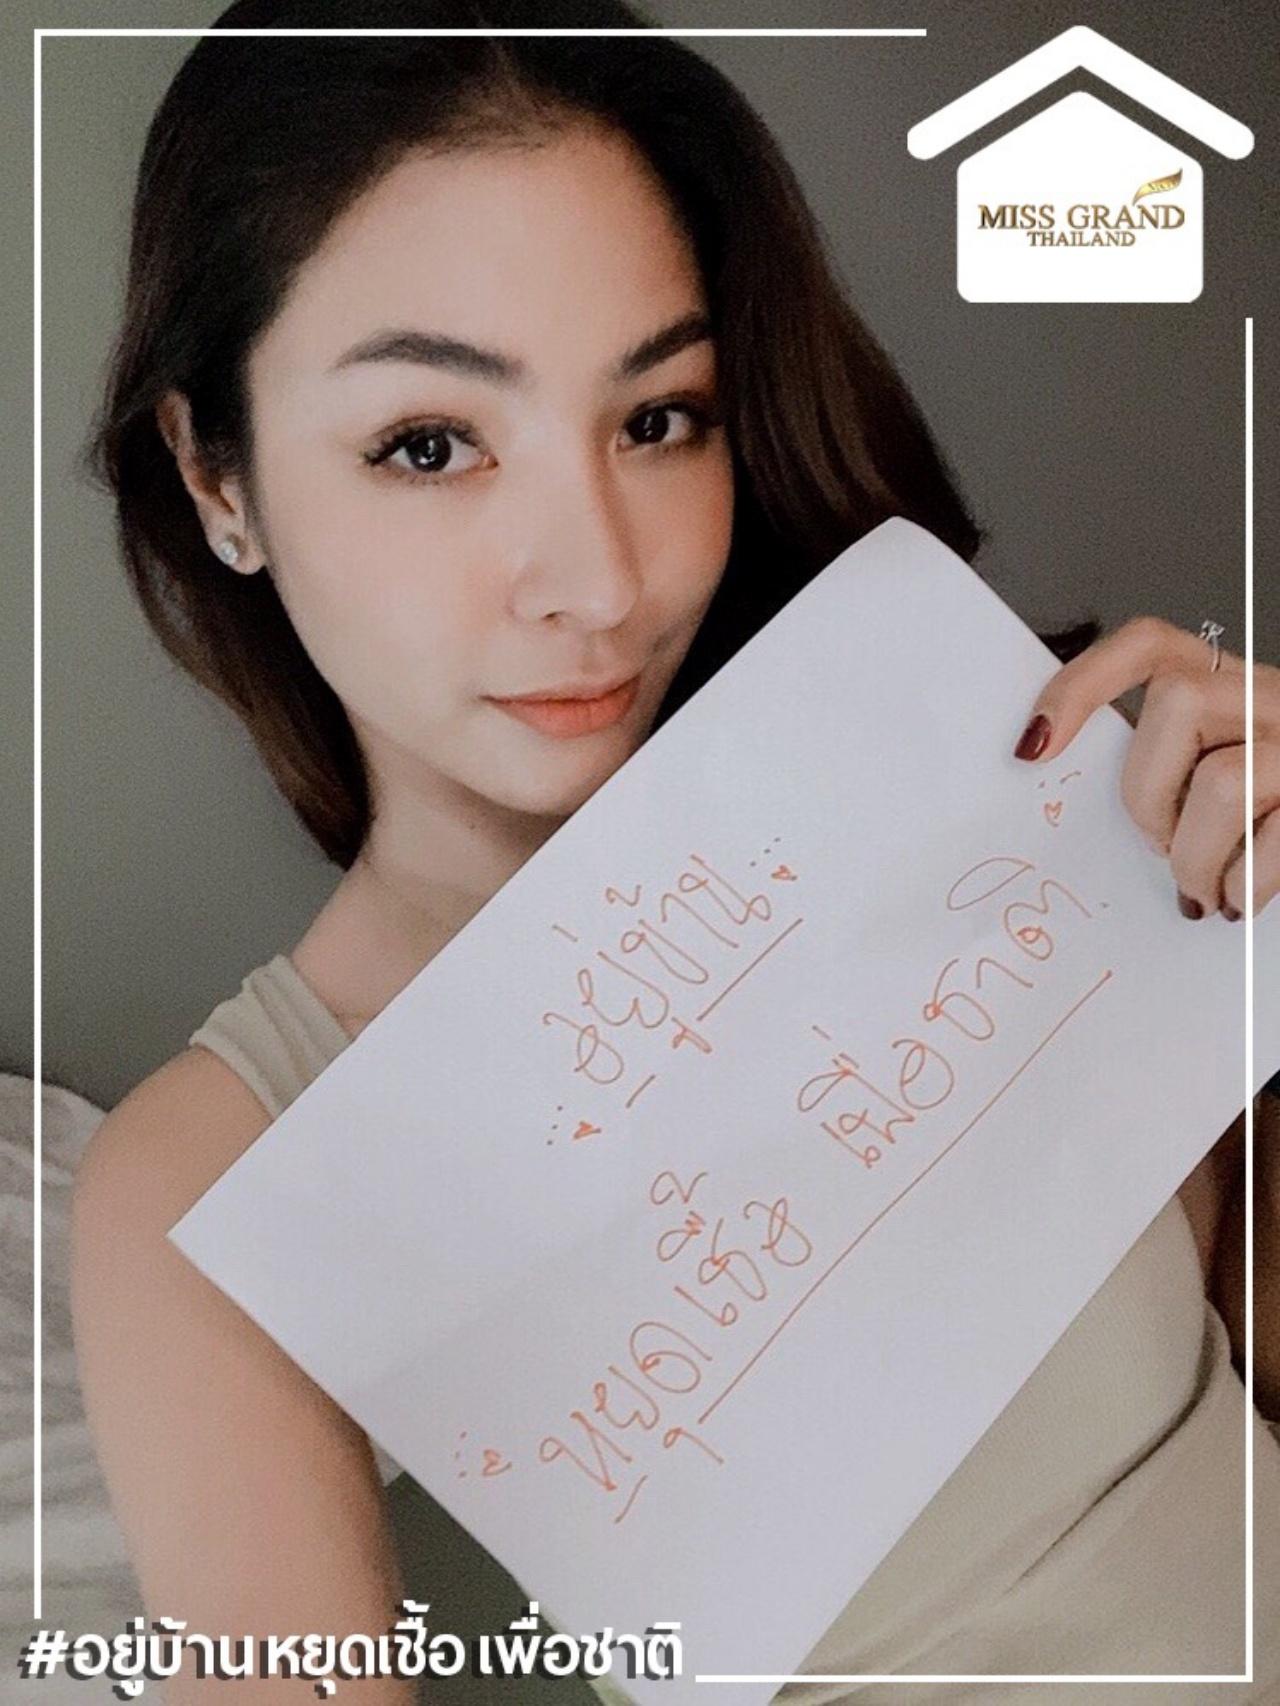 MISS GRAND
THAILAND
อยู่บ้าน
หยุดเชื้อ เพื่อชาติ
#อยู่บ้าน หยุดเชื้อ เพื่อชาติ